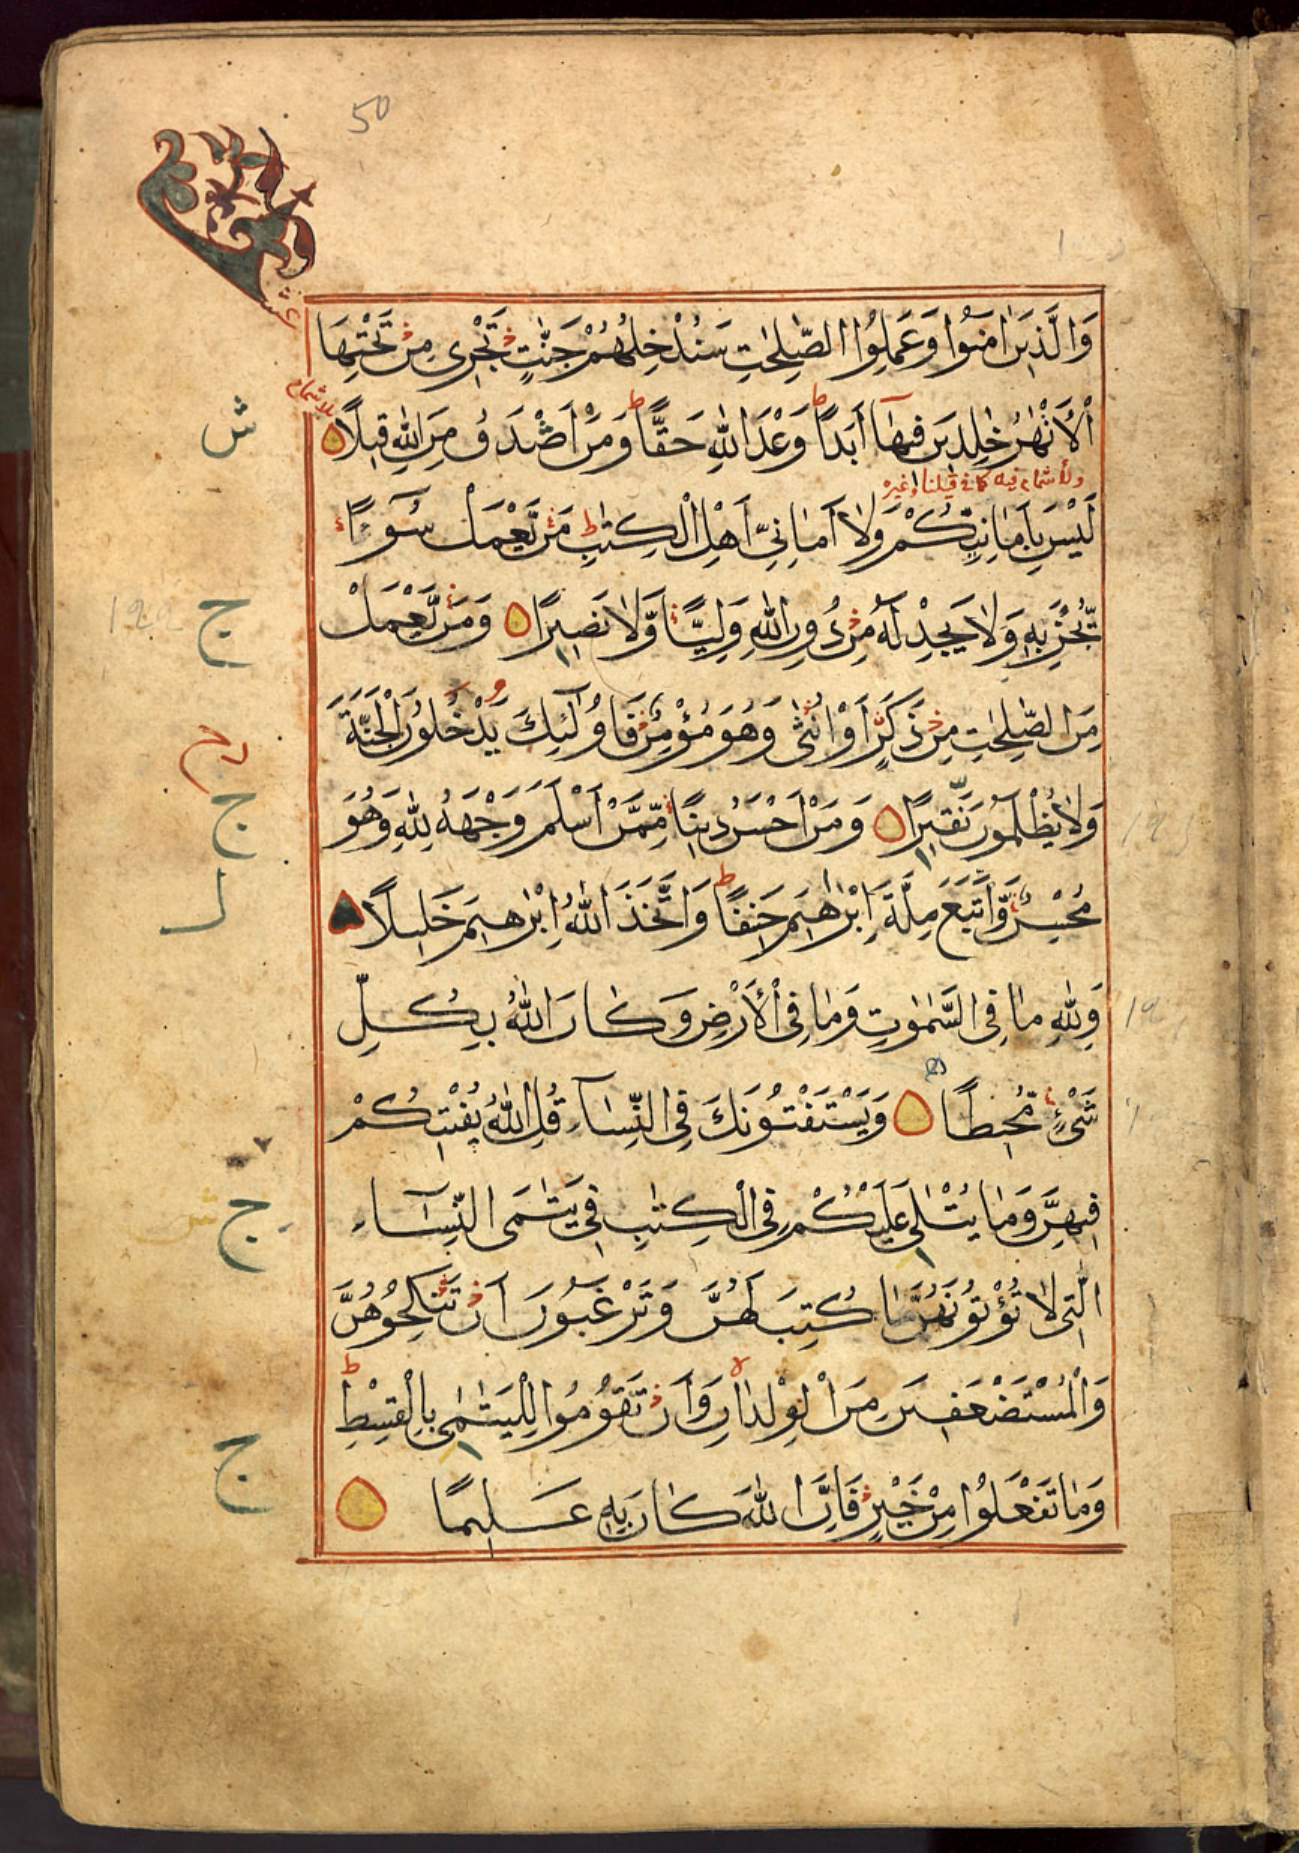 50
وَالَّذِينَ اٰمَنُوا وَعَمِلُوا الصّٰلِحٰتِ سَنُدْخِلُهُمْ جَنّٰتٍ تَجْرِى مِنْ تَحْتِهَا
الْاَنْهٰرُ خٰلِدِينَ فِيهَآ اَبَدًا ط وَعْدَ اللّٰهِ حَقًّا ط وَمَنْ اَصْدَقُ مِنَ اللّٰهِ قِيلًا
بلا شمام
ولا شمام فيه كما في قيلنا وغيره
لَيْسَ بِاَمَانِيِّكُمْ وَلَا اَمَانِىِّ اَهْلِ الْكِتٰبِ ط مَنْ يَّعْمَلْ سُوٓءًا
يُّجْزَ بِهٖ وَلَا يَجِدْ لَهٗ مِنْ دُونِ اللّٰهِ وَلِيًّا وَّلَا نَصِيرًا وَمَنْ يَّعْمَلْ
مِنَ الصّٰلِحٰتِ مِنْ ذَكَرٍ اَوْ اُنْثٰى وَهُوَ مُؤْمِنٌ فَاُولٰٓئِكَ يَدْخُلُونَ الْجَنَّةَ
وَلَا يُظْلَمُونَ نَقِيرًا وَمَنْ اَحْسَنُ دِينًا مِّمَّنْ اَسْلَمَ وَجْهَهٗ لِلّٰهِ وَهُوَ
مُحْسِنٌ وَّاتَّبَعَ مِلَّةَ اِبْرٰهِيمَ حَنِيفًا ط وَاتَّخَذَ اللّٰهُ اِبْرٰهِيمَ خَلِيلًا
وَلِلّٰهِ مَا فِى السَّمٰوٰتِ وَمَا فِى الْاَرْضِ وَكَانَ اللّٰهُ بِكُلِّ
شَىْءٍ مُّحِيطًا وَيَسْتَفْتُونَكَ فِى النِّسَآءِ قُلِ اللّٰهُ يُفْتِيكُمْ
فِيهِنَّ وَمَا يُتْلٰى عَلَيْكُمْ فِى الْكِتٰبِ فِى يَتٰمَى النِّسَآءِ
الّٰتِى لَا تُؤْتُونَهُنَّ مَا كُتِبَ لَهُنَّ وَتَرْغَبُونَ اَنْ تَنْكِحُوهُنَّ
وَالْمُسْتَضْعَفِينَ مِنَ الْوِلْدَانِ لا وَاَنْ تَقُومُوا لِلْيَتٰمٰى بِالْقِسْطِ ط
وَمَا تَفْعَلُوا مِنْ خَيْرٍ فَاِنَّ اللّٰهَ كَانَ بِهٖ عَلِيمًا
ش
ج
ج
ج
ج